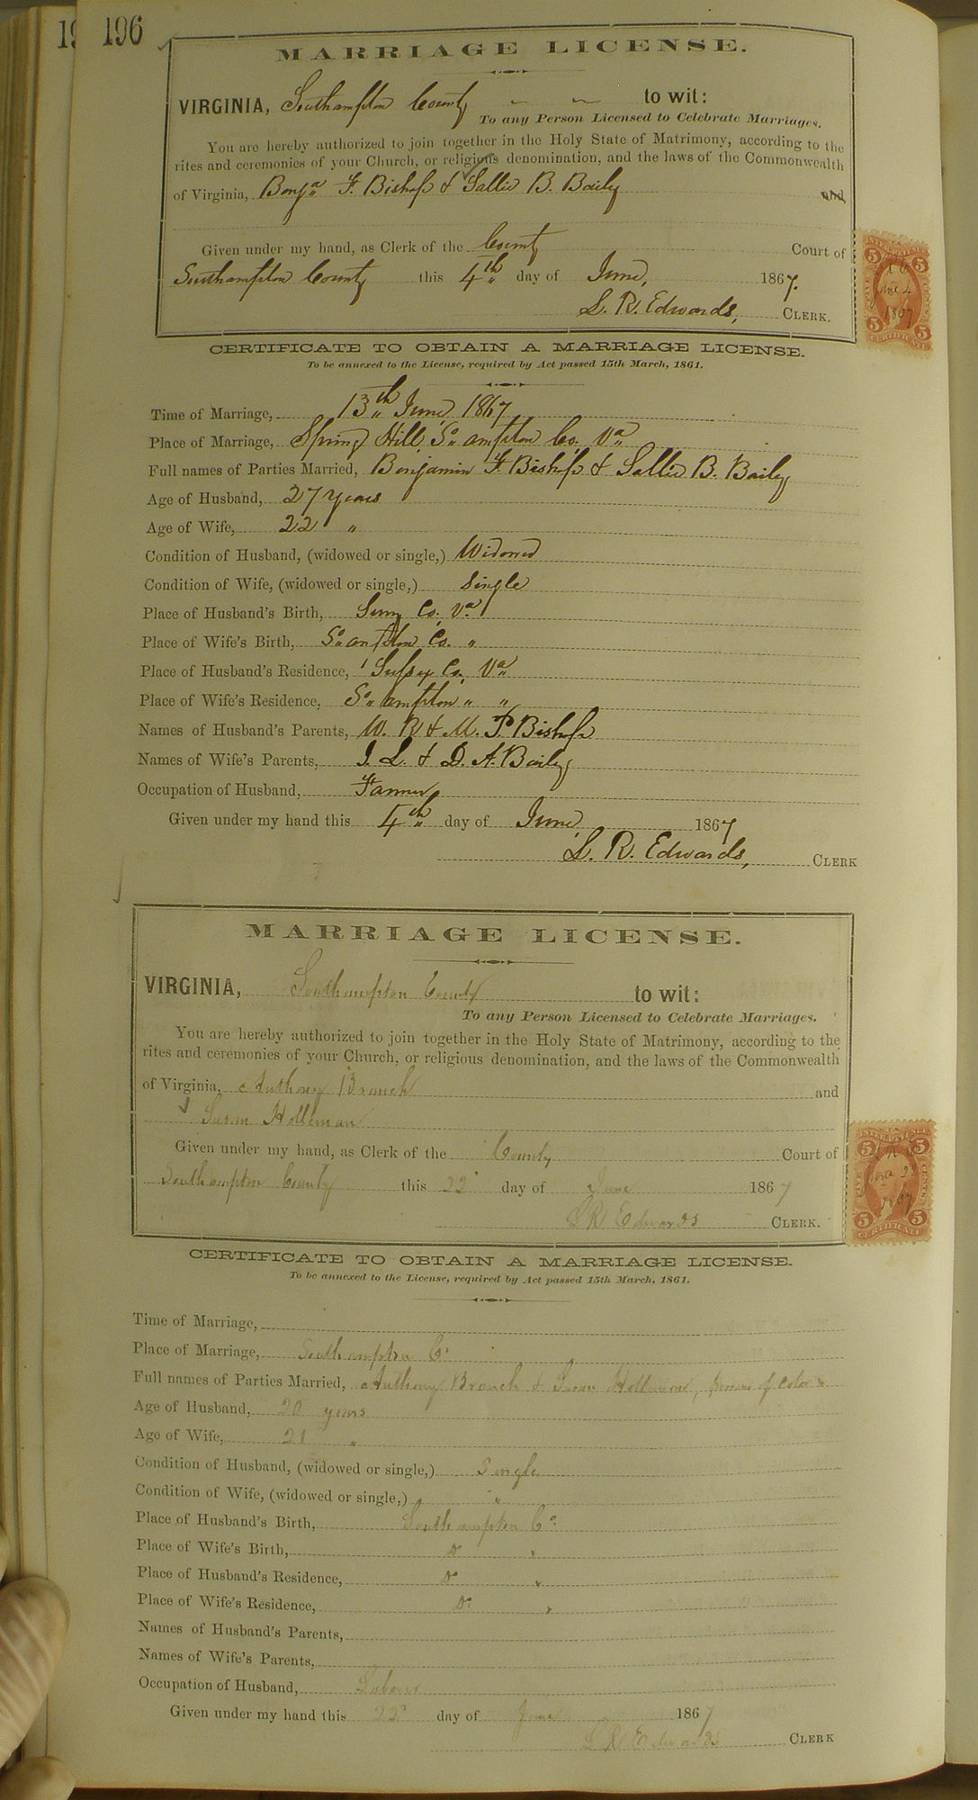 196
MARRIAGE LICENSE.
VIRGINIA, Southampton County to wit:
To any Person Licensed to Celebrate Marriages.
You are hereby authorized to join together in the Holy State of Matrimony, according to the
rites and ceremonies of your Church, or religious denomination, and the laws of the Commonwealth
of Virginia, Benja F. Bishop & Sallie B. Baily and
Given under my hand, as Clerk of the County Court of
Southampton County this 4th day of June, 1867.
L. R. Edwards, CLERK.
CERTIFICATE TO OBTAIN A MARRIAGE LICENSE.
To be annexed to the License, required by Act passed 15th March, 1861.
Time of Marriage, 13th June 1867
Place of Marriage, Spring Hill, So ampton Co. Va
Full names of Parties Married, Benjamin F. Bishop & Sallie B. Baily
Age of Husband, 27 years
Age of Wife, 22 "
Condition of Husband, (widowed or single,) Widowed
Condition of Wife, (widowed or single,) Single
Place of Husband's Birth, Surry Co. Va
Place of Wife's Birth, So ampton Co. "
Place of Husband's Residence, Sussex Co. Va
Place of Wife's Residence, So ampton " "
Names of Husband's Parents, W. R & M. P. Bishop
Names of Wife's Parents, J. L. & D. A. Baily
Occupation of Husband, Farmer
Given under my hand this 4th day of June 1867
L. R. Edwards, CLERK
MARRIAGE LICENSE.
VIRGINIA, Southampton County to wit:
To any Person Licensed to Celebrate Marriages.
You are hereby authorized to join together in the Holy State of Matrimony, according to the
rites and ceremonies of your Church, or religious denomination, and the laws of the Commonwealth
of Virginia, Anthony Branch and
Susan Holleman
Given under my hand, as Clerk of the County Court of
Southampton County this 22 day of June 1867
L R Edwards CLERK.
CERTIFICATE TO OBTAIN A MARRIAGE LICENSE.
To be annexed to the License, required by Act passed 15th March, 1861.
Time of Marriage,
Place of Marriage, Southampton Co
Full names of Parties Married, Anthony Branch & Susan Holleman, persons of color
Age of Husband, 20 years
Age of Wife, 21 "
Condition of Husband, (widowed or single,) Single
Condition of Wife, (widowed or single,) "
Place of Husband's Birth, Southampton Co
Place of Wife's Birth, Do "
Place of Husband's Residence, Do "
Place of Wife's Residence, Do "
Names of Husband's Parents,
Names of Wife's Parents,
Occupation of Husband, Laborer
Given under my hand this 22 day of June 1867
L R Edwards CLERK